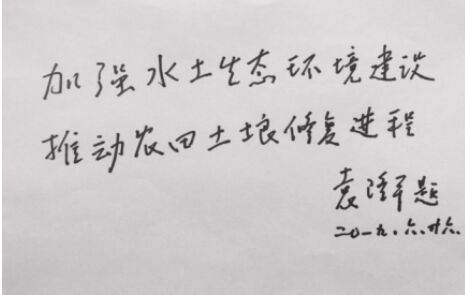 加强水土生态环境建设
推动农田土壤修复进程
袁隆平题
二〇一九.六.廿六.